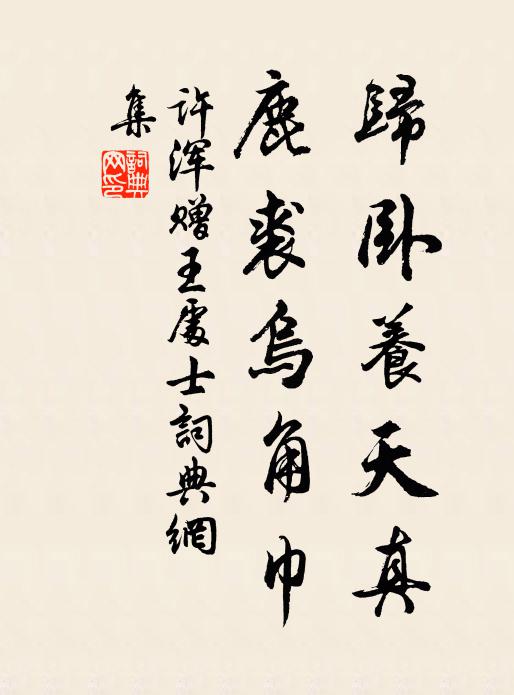 歸卧養天真
鹿裘烏角巾
许浑赠王處士詞典網
集
詞典
网印